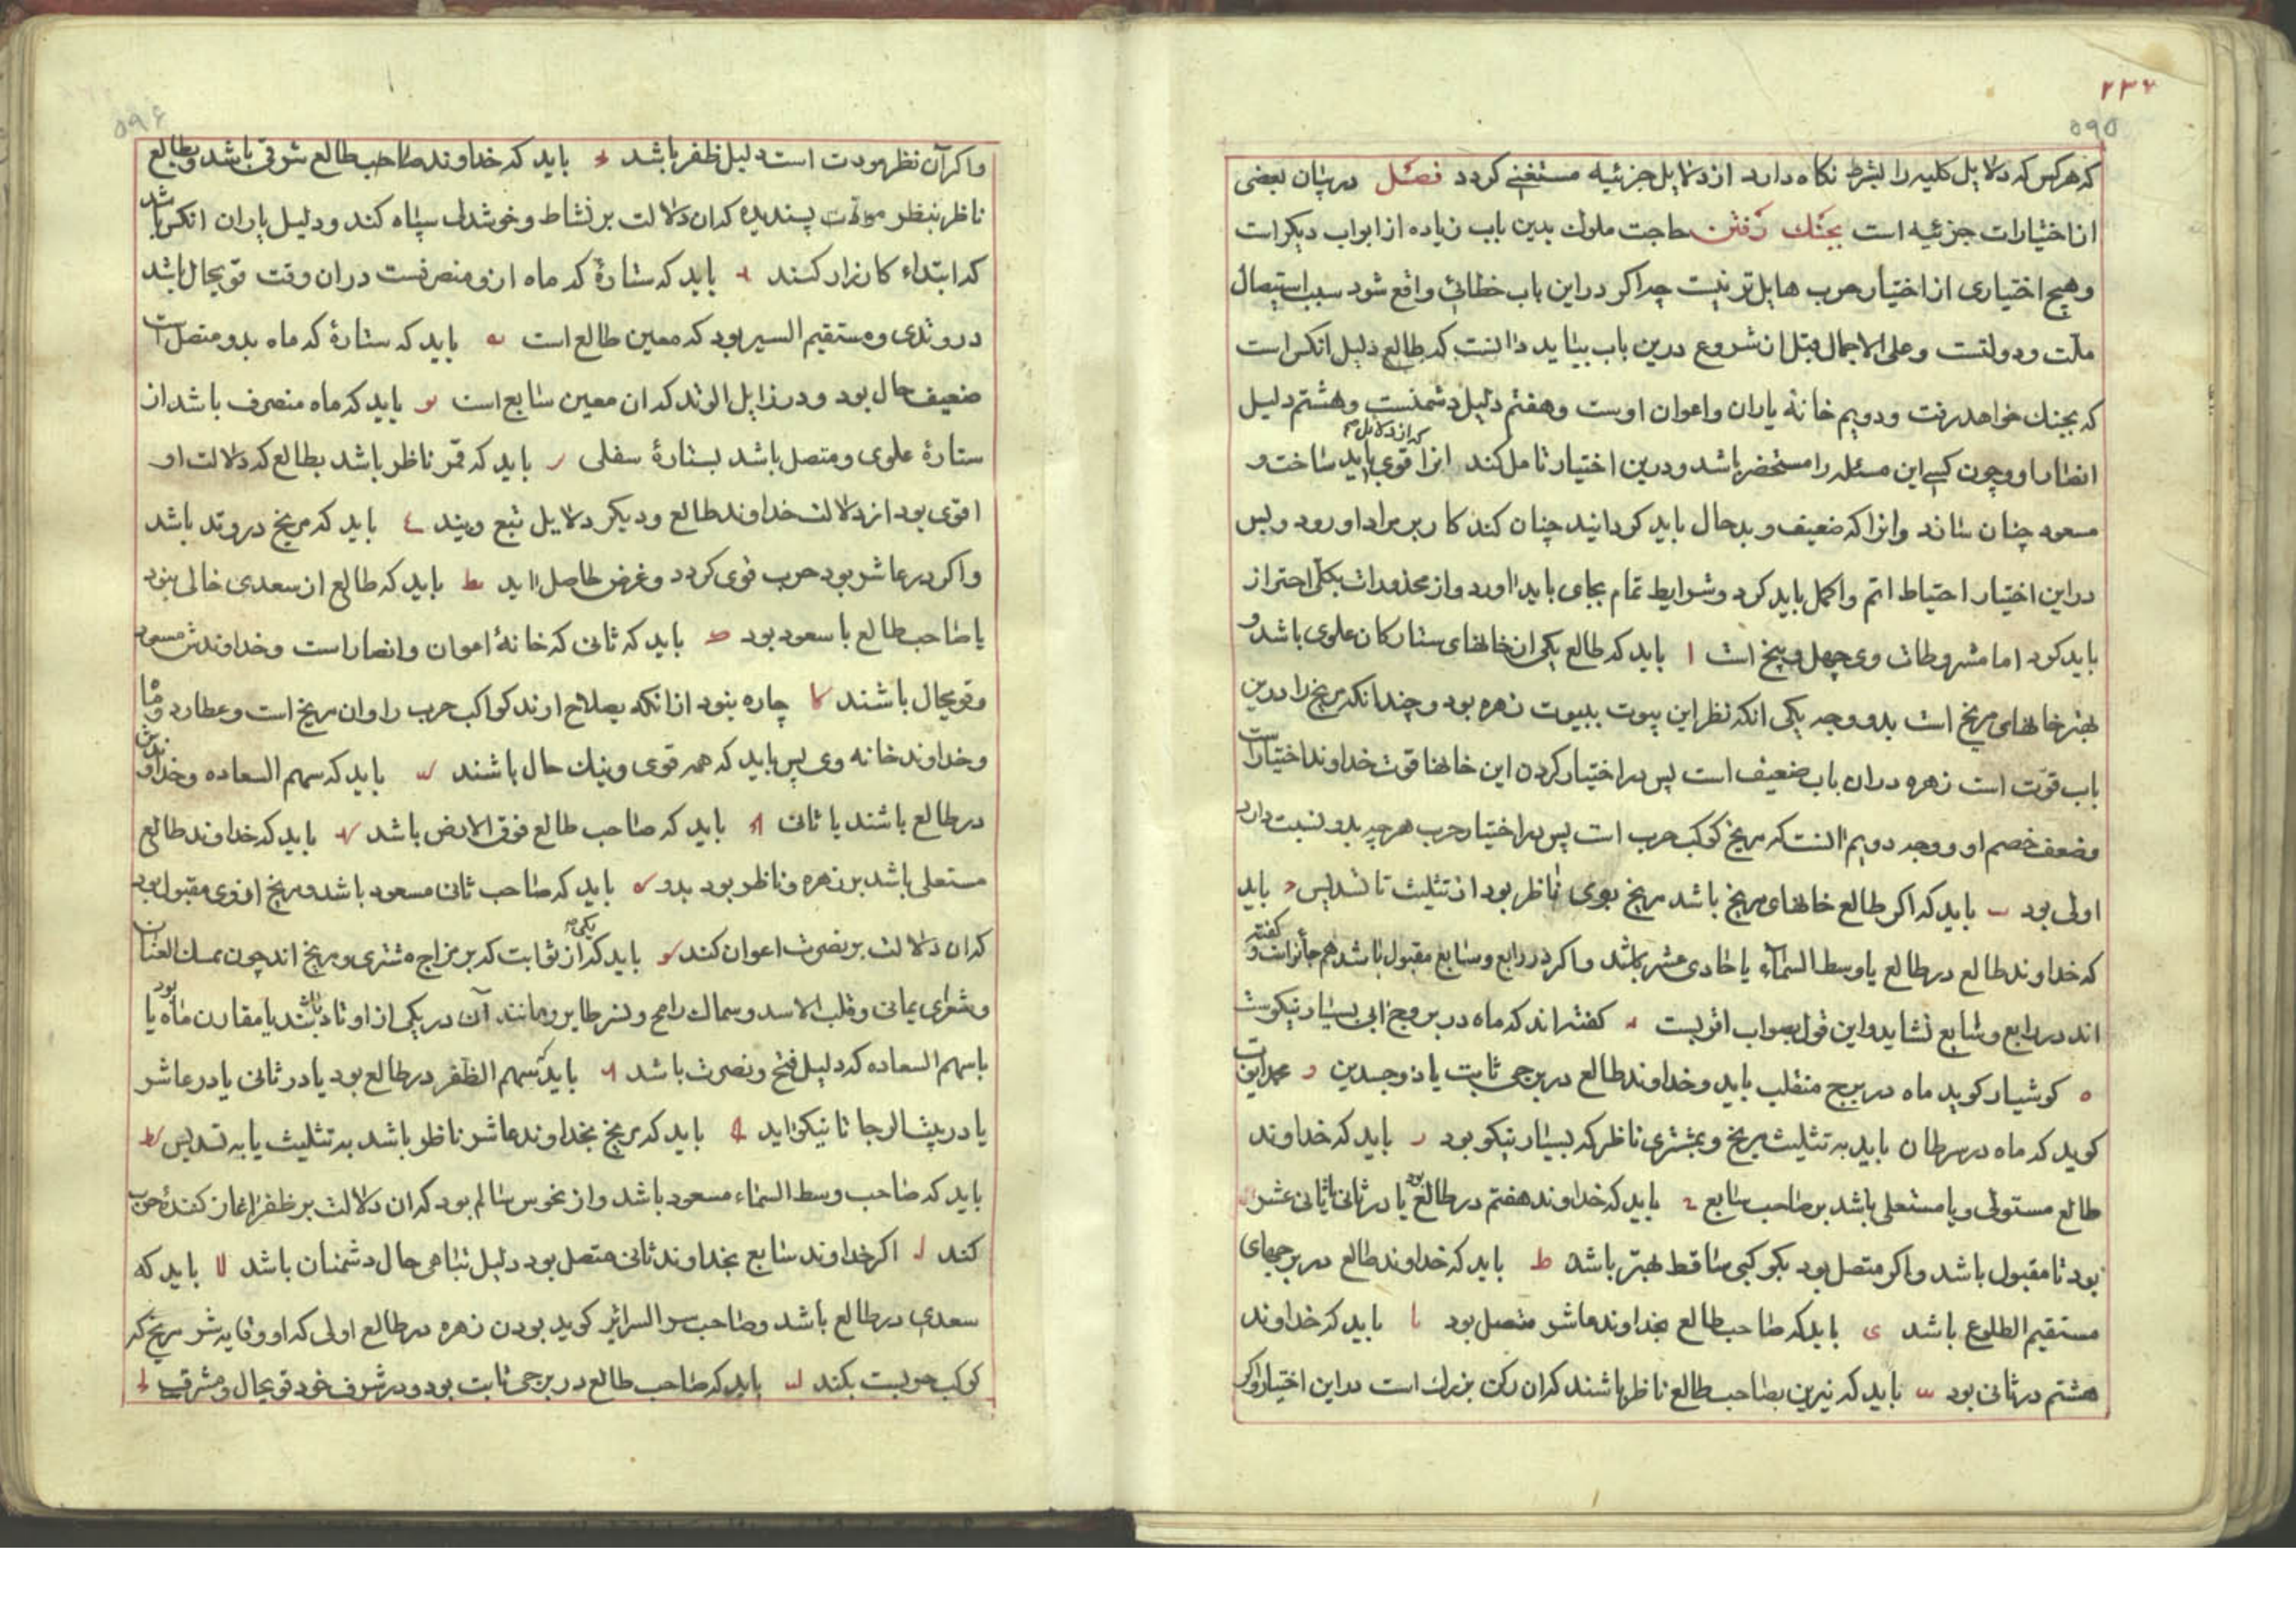 ۲۳۴
۵۹۵
که هر کس که دلایل کلیه را بشرط نکاه دارد از دلایل جزئیه مستغنی کردد فصل در بیان بعضی
از اختیارات جزئیه است بجنك رفتن حاجت ملوك بدین باب زیاده از ابواب دیکر است
و هیچ اختیاری از اختیار حرب هایل تر نیست چه اکر در این باب خطائی واقع شود سبب استیصال
ملت و دولتست و علی الاجمال قبل از شروع درین باب بباید دانست که طالع دلیل انکس است
که بجنك خواهد رفت و دویم خانه یاران و اعوان اوست و هفتم دلیل دشمنست و هشتم دلیل
انصار او و چون کسی این مسئله را مستحضر باشد و درین اختیار تامل کند انرا که از دلایل قوی باید ساخت و
مسعود چنان سازد و انرا که ضعیف و بدحال باید کردانید چنان کند کار بر مراد اورود و لیس
در این اختیار احتیاط اتم و اکمل باید کرد و شرایط تمام بجای باید اورد و از محذورات بکلی احتراز
باید کرد اما مشروطات وی چهل و پنج است ا باید که طالع یکی از خانهای ستارکان علوی باشد و
بهتر خانهای مریخ است بدو وجه یکی انکه نظر این بیوت ببیوت زهره بود و چندانکه مریخ را درین
باب قوت است زهره در ان باب ضعیف است پس در اختیار کردن این خانها قوت خداوند اختیار است
و ضعف خصم او و وجه دویم انست که مریخ کوکب حرب است پس در اختیار حرب هر چه بدو نسبت دارد
اولی بود ب باید که اکر طالع خانهای مریخ باشد مریخ بوی ناظر بود از تثلیث تا تسدیس ج باید
که خداوند طالع در طالع یا وسط السماء یا حادی عشر باشد و اکر در رابع و سابع مقبول باشد هم جائز است و کفته
اند در رابع و سابع نشاید و این قول بصواب اقربست د کفته اند که ماه در بروج ابی بسیار نیکوست
ه کوشیار کوید ماه در برج منقلب باید و خداوند طالع در برجی ثابت یا ذوجسدین و محمد ایوب
کوید که ماه در سرطان باید به تثلیث مریخ و بمشتری ناظر که بسیار نیکو بود ر باید که خداوند
طالع مستولی و یا مستعلی باشد بر صاحب سابع ح باید که خداوند هفتم در طالع بود یا در ثانی یا ثانی عشر
بود تا مقبول باشد و اکر متصل بود بکوکبی ساقط بهتر باشد ط باید که خداوند طالع در برجهای
مستقیم الطلوع باشد ی باید که صاحب طالع بخداوند عاشر متصل بود یا باید که خداوند
هشتم در ثانی بود یب باید که نیرین بصاحب طالع ناظر باشند که ان رکن بزرك است در این اختیار و اکر
۵۹۶
و اکر آن نظر مودت است دلیل ظفر باشد یج باید که خداوند صاحب طالع شرقی باشد و بطالع
ناظر بنظر مودت پسندیده که ان دلالت بر نشاط و خوشدلی سپاه کند و دلیل یاران انکس باشد
که ابتداء کارزار کنند ید باید که ستارهٔ که ماه ازو منصرفست در ان وقت قویحال باشد
در وتدی و مستقیم السیر بود که معین طالع است یه باید که ستارهٔ که ماه بدو متصل است
ضعیف حال بود و در زایل الوتد که ان معین سابع است یو باید که ماه منصرف باشد از
ستارهٔ علوی و متصل باشد بستارهٔ سفلی یز باید که قمر ناظر باشد بطالع که دلالت او
اقوی بود از دلالت خداوند طالع و دیکر دلایل تبع ویند یح باید که مریخ در وتد باشد
و اکر در عاشر بود حرب قوی کردد و غرض حاصل اید یط باید که طالع از سعدی خالی نبود
یا صاحب طالع با سعود بود ك باید که ثانی که خانهٔ اعوان و انصار است و خداوندش مسعود
و قویحال باشند کا چاره نبود از انکه بصلاح ارند کواکب حرب را و ان مریخ است و عطارد و ماه
و خداوند خانه وی پس باید که همه قوی و نیك حال باشند کب باید که سهم السعاده و خداوندش
در طالع باشند یا ثانی کج باید که صاحب طالع فوق الارض باشد کد باید که خداوند طالع
مستعلی باشد بر زهره و ناظر بود بدو که باید که صاحب ثانی مسعود باشد و مریخ از وی مقبول بود
که ان دلالت بر نصرت اعوان کند کو باید که یکی از ثوابت که بر مزاج مشتری و مریخ اند چون ممسك العنان
و شعرای یمانی و قلب الاسد و سماك رامح و نسر طایر و مانند آن در یکی از اوتاد باشد یا مقارن ماه بود یا
با سهم السعاده که دلیل فتح و نصرت باشد کز باید که سهم الظفر در طالع بود یا در ثانی یا در عاشر
یا در بیت الرجا تا نیکو اید کح باید که مریخ بخداوند عاشر ناظر باشد به تثلیث یا به تسدیس کط
باید که صاحب وسط السماء مسعود باشد و از نحوس سالم بود که ان دلالت بر ظفر اغاز کنندهٔ حرب
کند ل اکر خداوند سابع بخداوند ثانی متصل بود دلیل تباهی حال دشمنان باشد لا باید که
سعدی در طالع باشد و صاحب سر السرائر کوید بودن زهره در طالع اولی که او وقایه شر مریخ که
کوکب حربست بکند لب باید که صاحب طالع در برجی ثابت بود و در شرف خود قویحال و مشرقی لج